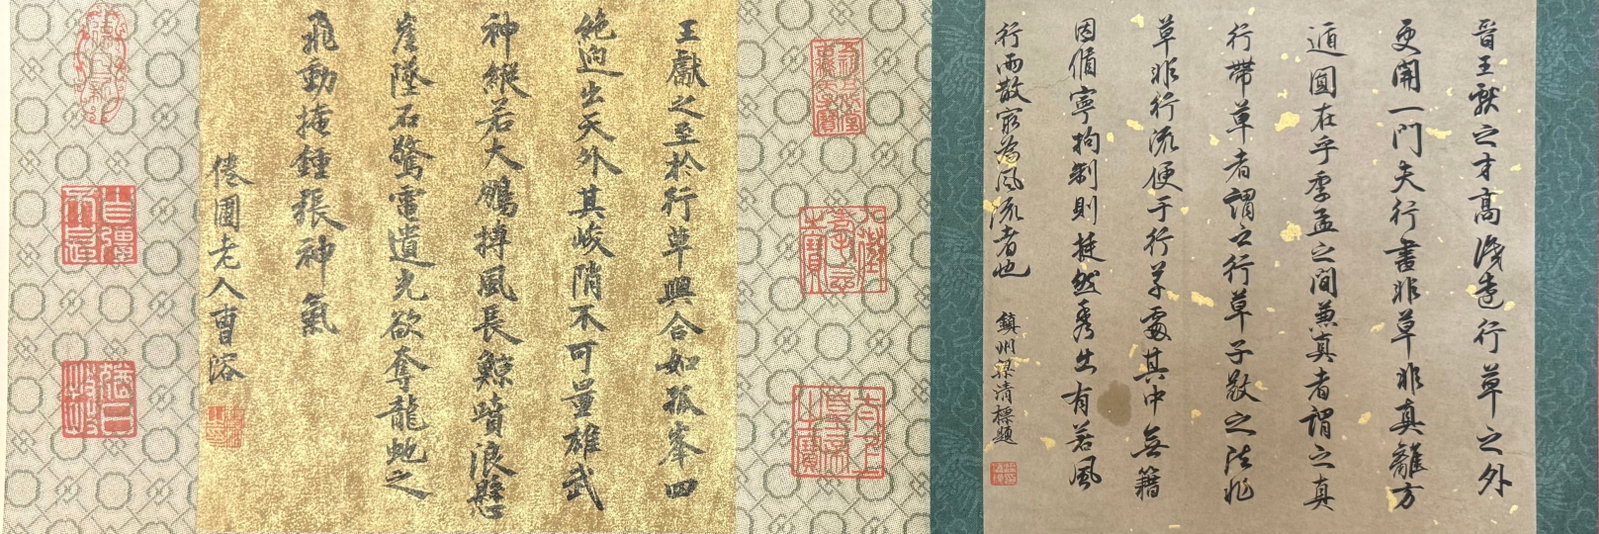 晉王獻之才高識遠行草之外
更開一門夫行書非草非真離方
遁圓在乎季孟之間兼真者謂之真
行帶草者謂之行草子敬之法非
草非行流便于行草處其中無籍
因循寧拘制則挺然秀出有若風
行雨散寂為風流者也
鎮州梁清標題
王獻之至於行草興合如孤峯四
絕迥出天外其峻陗不可量雄武
神縱若大鵬摶風長鯨噴浪懸
崖墜石驚電遺光欲奪龍虵之
飛動掩鍾張神氣
倦圃老人曹溶